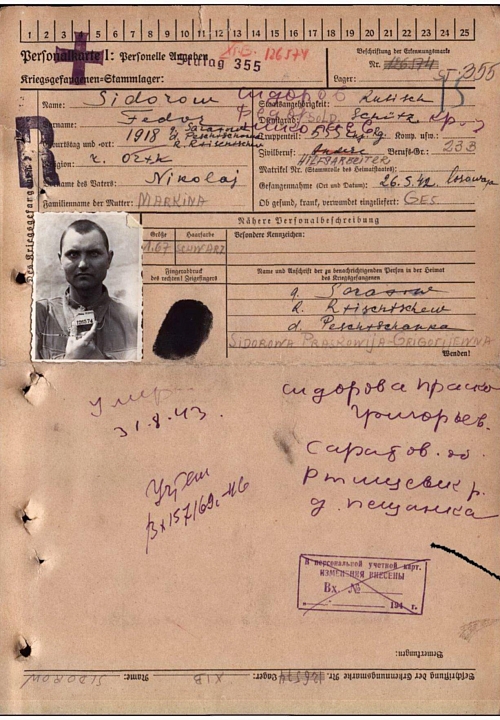 1 2 3 4 5 6 7 8 9 10 11 12 13 14 15 16 17 18 19 20 21 22 23 24 25
Personalkarte I: Personelle Angaben
XI B 126574
Beschriftung der Erkennungsmarke
Stalag 355
Nr. 126574
Kriegsgefangenen-Stammlager:
Lager: ST. 355
Name: Sidorow
Сидоров
Staatsangehörigkeit:
Vorname: Fedor
Dienstgrad: Sold. Schütz
Geburtstag und -ort: 1918
Truppenteil: Komp. usw.:
Zivilberuf: Berufs-Gr.: 233
HILFSARBEITER
Religion: r. Ortk
Matrikel Nr. (Stammrolle des Heimatstaates):
Vorname des Vaters: Nikolaj
Gefangennahme (Ort und Datum): 26.5.42
Familienname der Mutter: MARKINA
Ob gesund, krank, verwundet eingeliefert: GES.
R
Nähere Personalbeschreibung
Größe Haarfarbe Besondere Kennzeichen:
1.67 SCHWARZ
Fingerabdruck
des rechten! Zeigefingers
Name und Anschrift der zu benachrichtigenden Person in der Heimat
des Kriegsgefangenen
g. Saratow
R. Rtischtschew
d. Peschtschanka
SIDOROWA PRASKOWIJA-GRIGORIJEWNA
Wenden!
31.8.43.
Сидорова Праско
Григорьев.
Саратов. об
Ртищевск р.
д. Пещанка
В персональной учетной карт.
ИЗМЕНЕНИЯ ВНЕСЕНЫ
Вх. №
194 г.
Bemerkungen:
Beschriftung der Erkennungsmarke Nr. 126574 Lager: XIB Name: SIDOROW